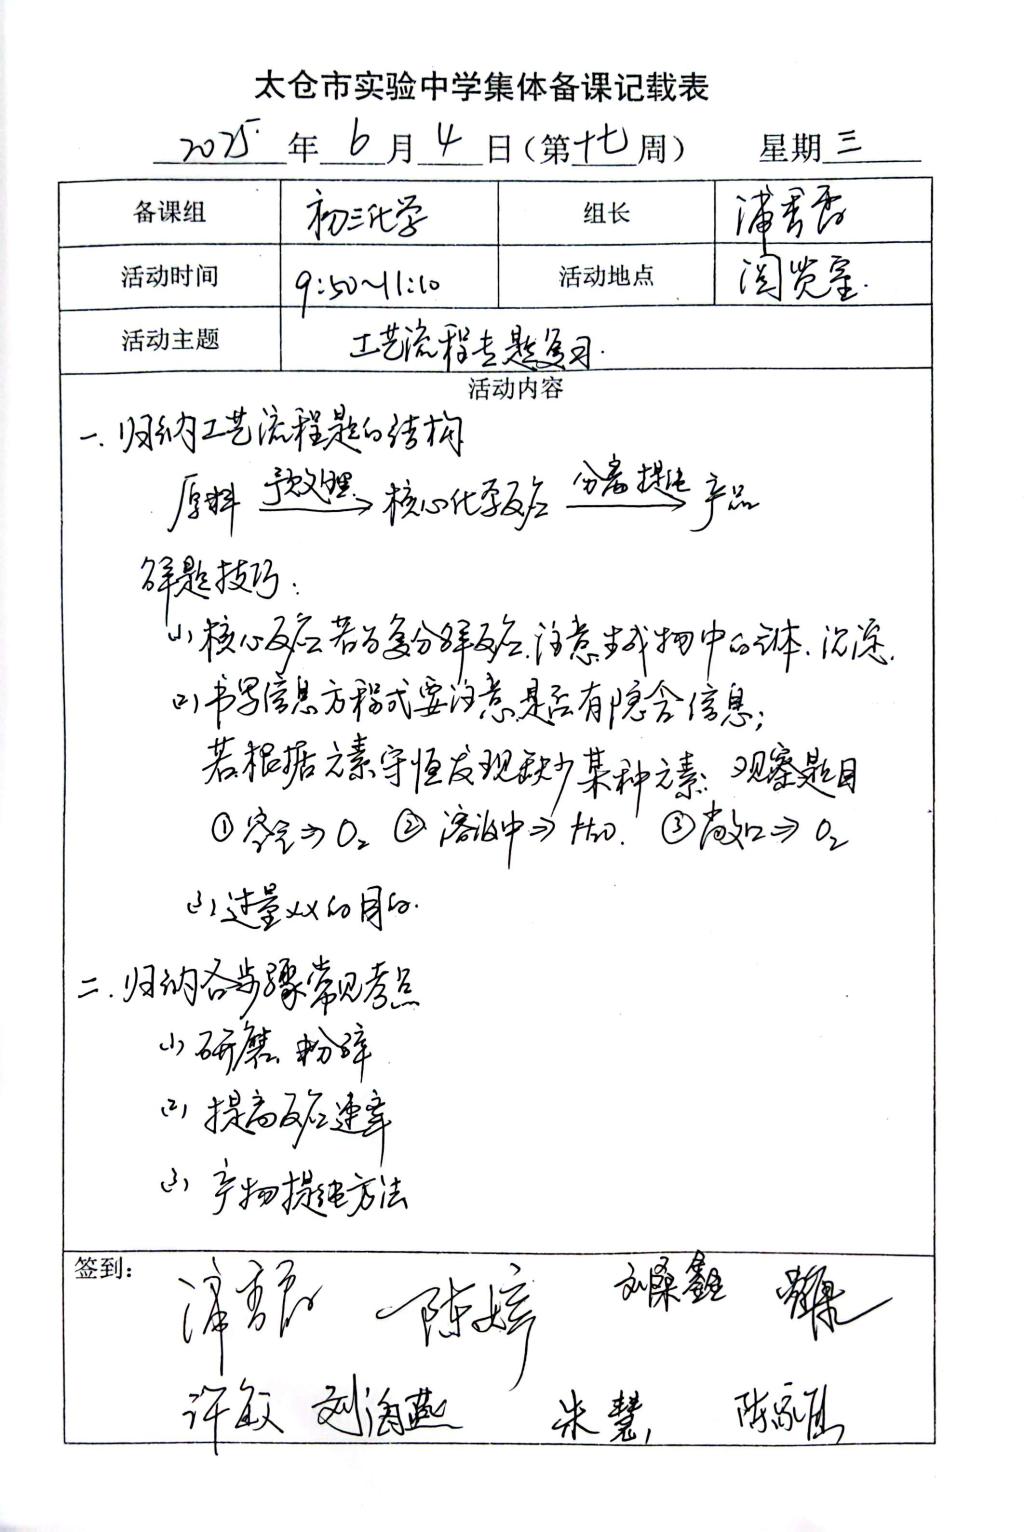 太仓市实验中学集体备课记载表
2025年6月4日(第十七周) 星期三
备课组 初三化学 组长
活动时间 9:50~11:10 活动地点 阅览室.
活动主题 工艺流程专题复习.
活动内容
一.归纳工艺流程题的结构
原料 预处理→ 核心化学反应 分离提纯→ 产品
解题技巧:
(1)核心反应若为复分解反应,注意生成物中的气体、沉淀.
(2)书写信息方程式要注意是否有隐含信息;
若根据元素守恒发现缺少某种元素:观察题目
①空气⇒O₂ ②溶液中⇒H₂O. ③敞口⇒O₂
(3)过量xx的目的.
二.归纳各步骤常见考点
(1)研磨、粉碎
(2)提高反应速率
(3)产物提纯方法
签到:
陈婷 刘燦鑫
许敏 刘海燕 朱慧